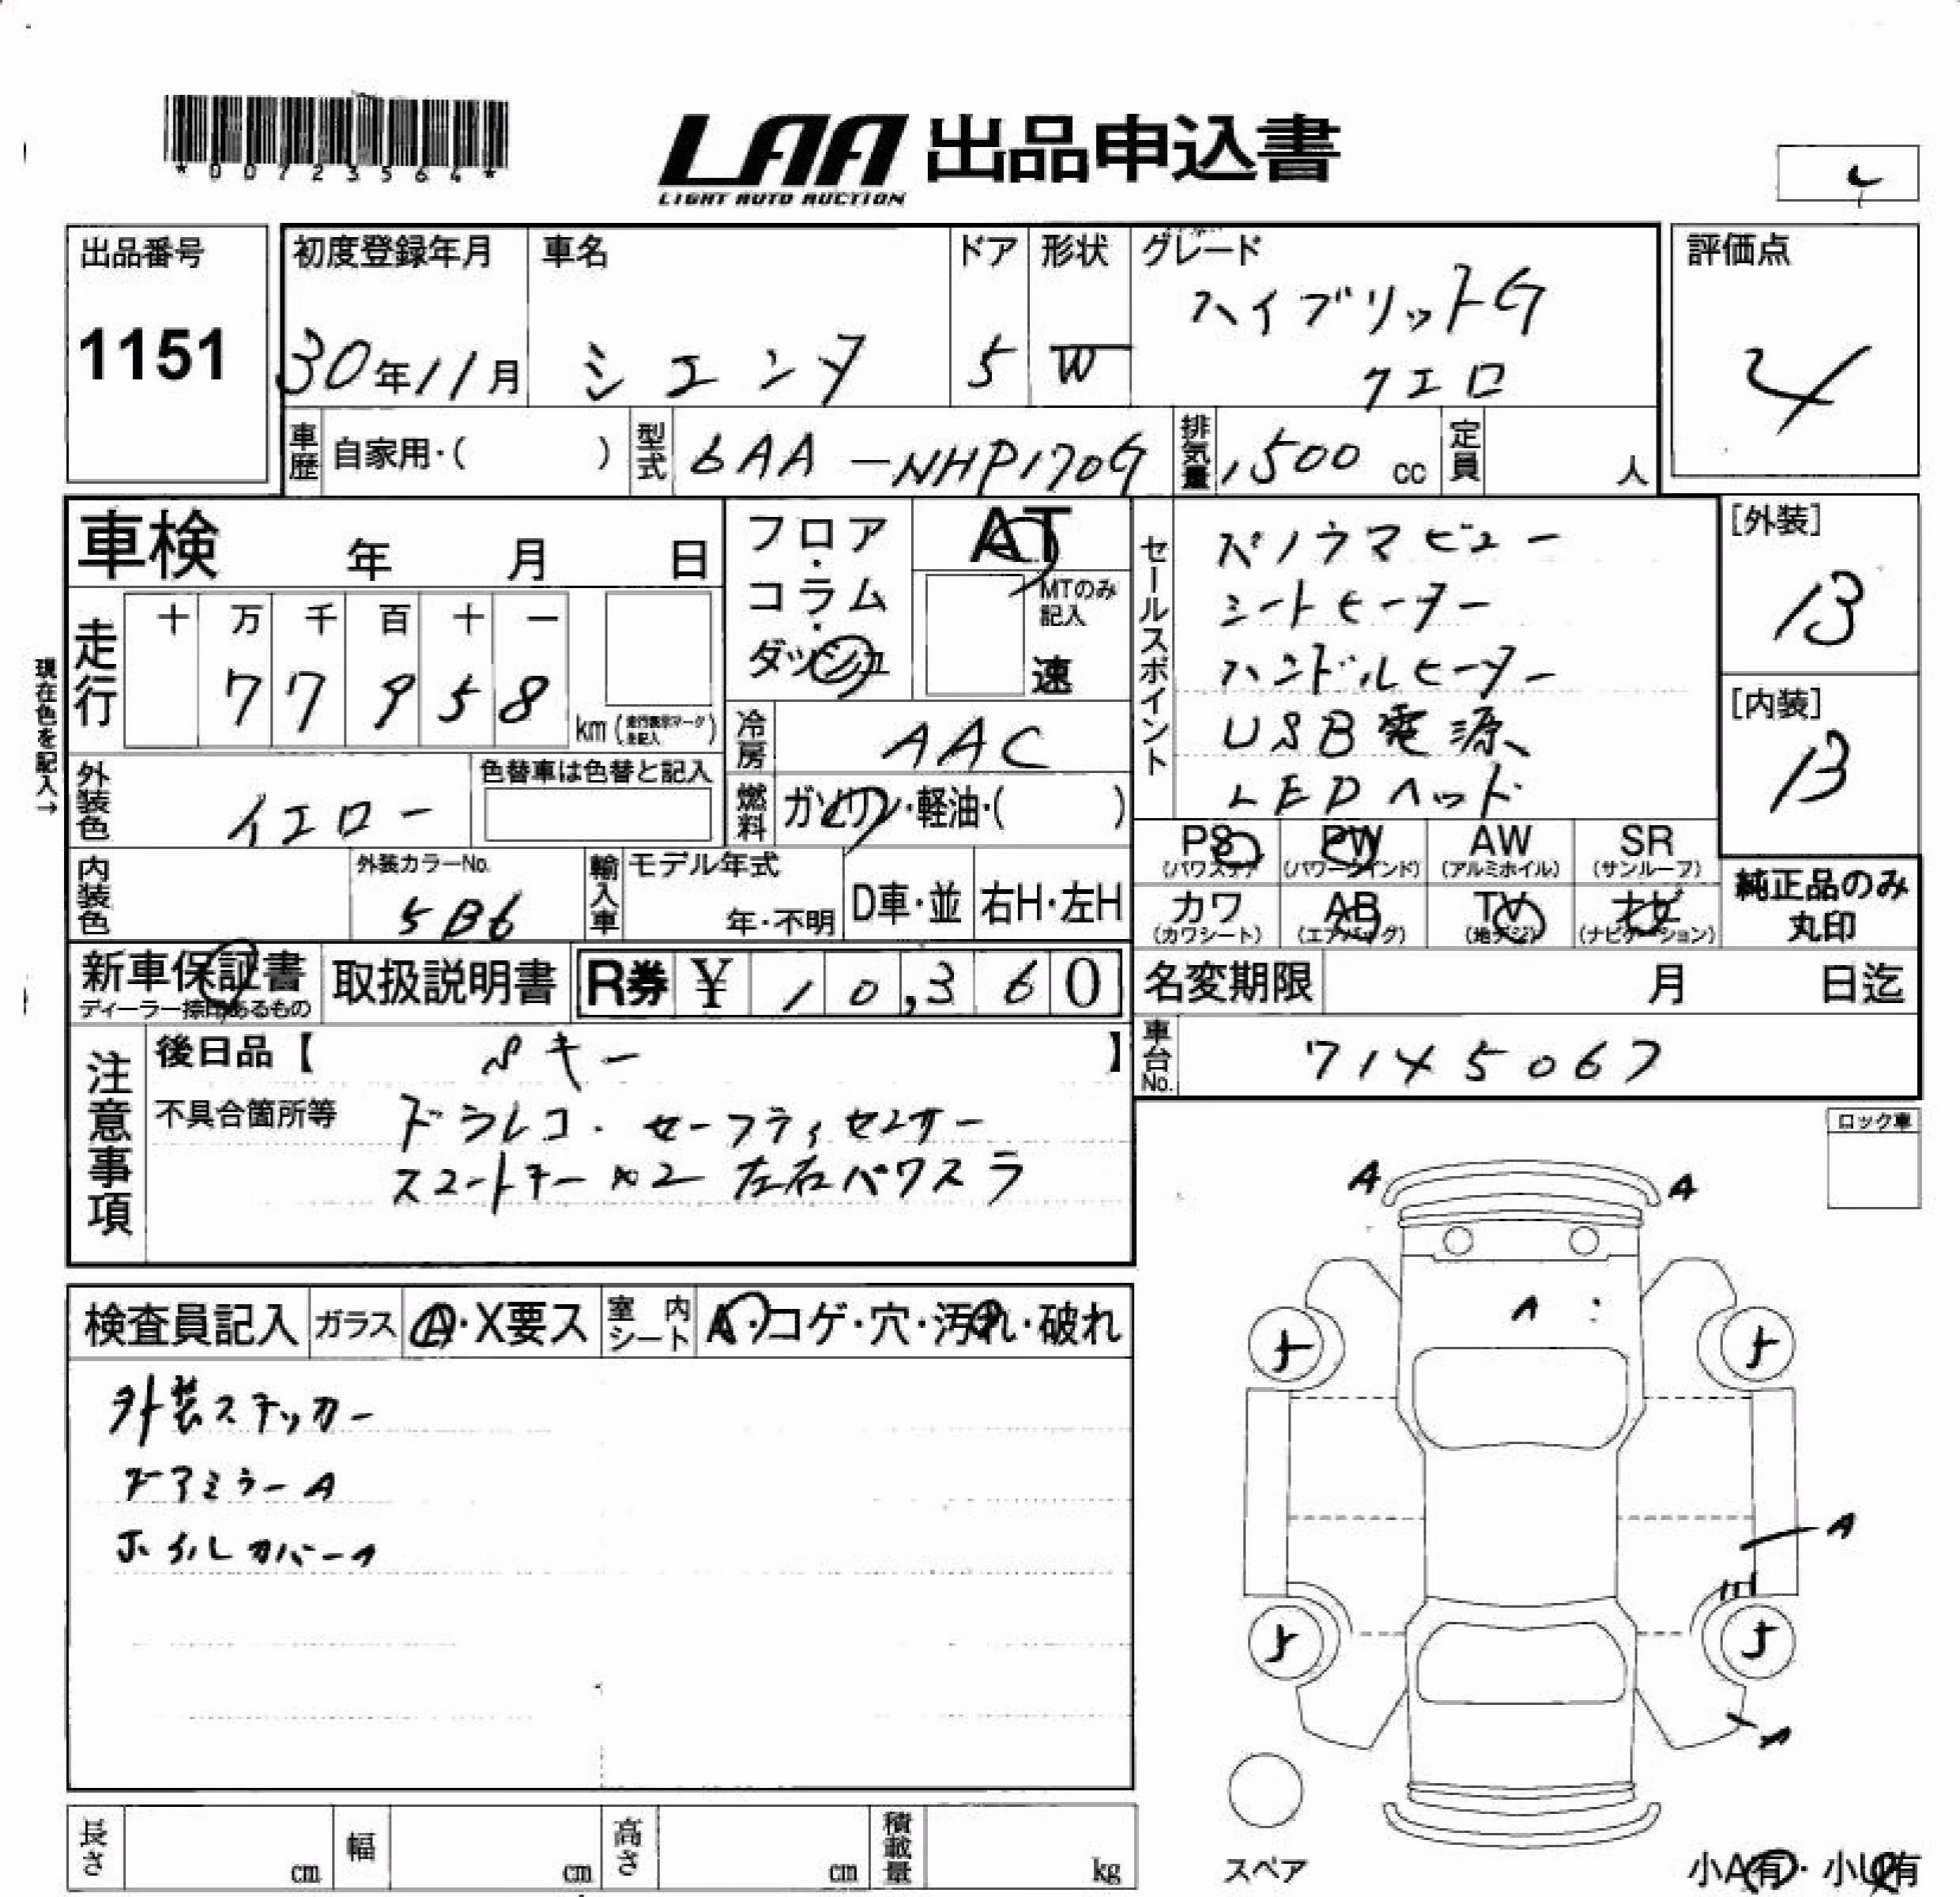 *00723564*
LAA 出品申込書
LIGHT AUTO AUCTION
出品番号
1151
初度登録年月
30年11月
車名
シエンタ
ドア
5
形状
W
グレード
ハイブリットG
クエロ
評価点
4
車歴 自家用・( )
型式 6AA-NHP170G
排気量 1500 cc
定員 人
車検 年 月 日
フロア・コラム・ダッシュ
AT
MTのみ記入
速
セールスポイント
パノラマビュー
シートヒーター
ハンドルヒーター
USB電源
LEDヘッド
[外装]
13
[内装]
13
現在色を記入→
走行 十 万 千 百 十 一
77958
km (走行表示マークを記入)
冷房 AAC
外装色 イエロー
色替車は色替と記入
燃料 ガソリン・軽油・( )
PS (パワステ) PW (パワーウインド) AW (アルミホイル) SR (サンルーフ)
カワ (カワシート) AB (エアバッグ) TV (地デジ) ナビ (ナビゲーション)
純正品のみ丸印
内装色
外装カラーNo.
5B6
輸入車 モデル年式
年・不明
D車・並
右H・左H
新車保証書
ディーラー捺印あるもの
取扱説明書
R券 ¥ 10,360
名変期限 月 日迄
車台No. 7145067
注意事項
後日品【 Sキー 】
不具合箇所等 ドラレコ・セーフティセンサー
スマートキー×2 左右パワスラ
ロック車
A A
A
検査員記入 ガラス A・X要ス 室内シート A・コゲ・穴・汚れ・破れ
外装ステッカー
ドアミラーA
ホイルカバーA
A
A
スペア
長さ cm 幅 cm 高さ cm 積載量 kg
小A有・小U有